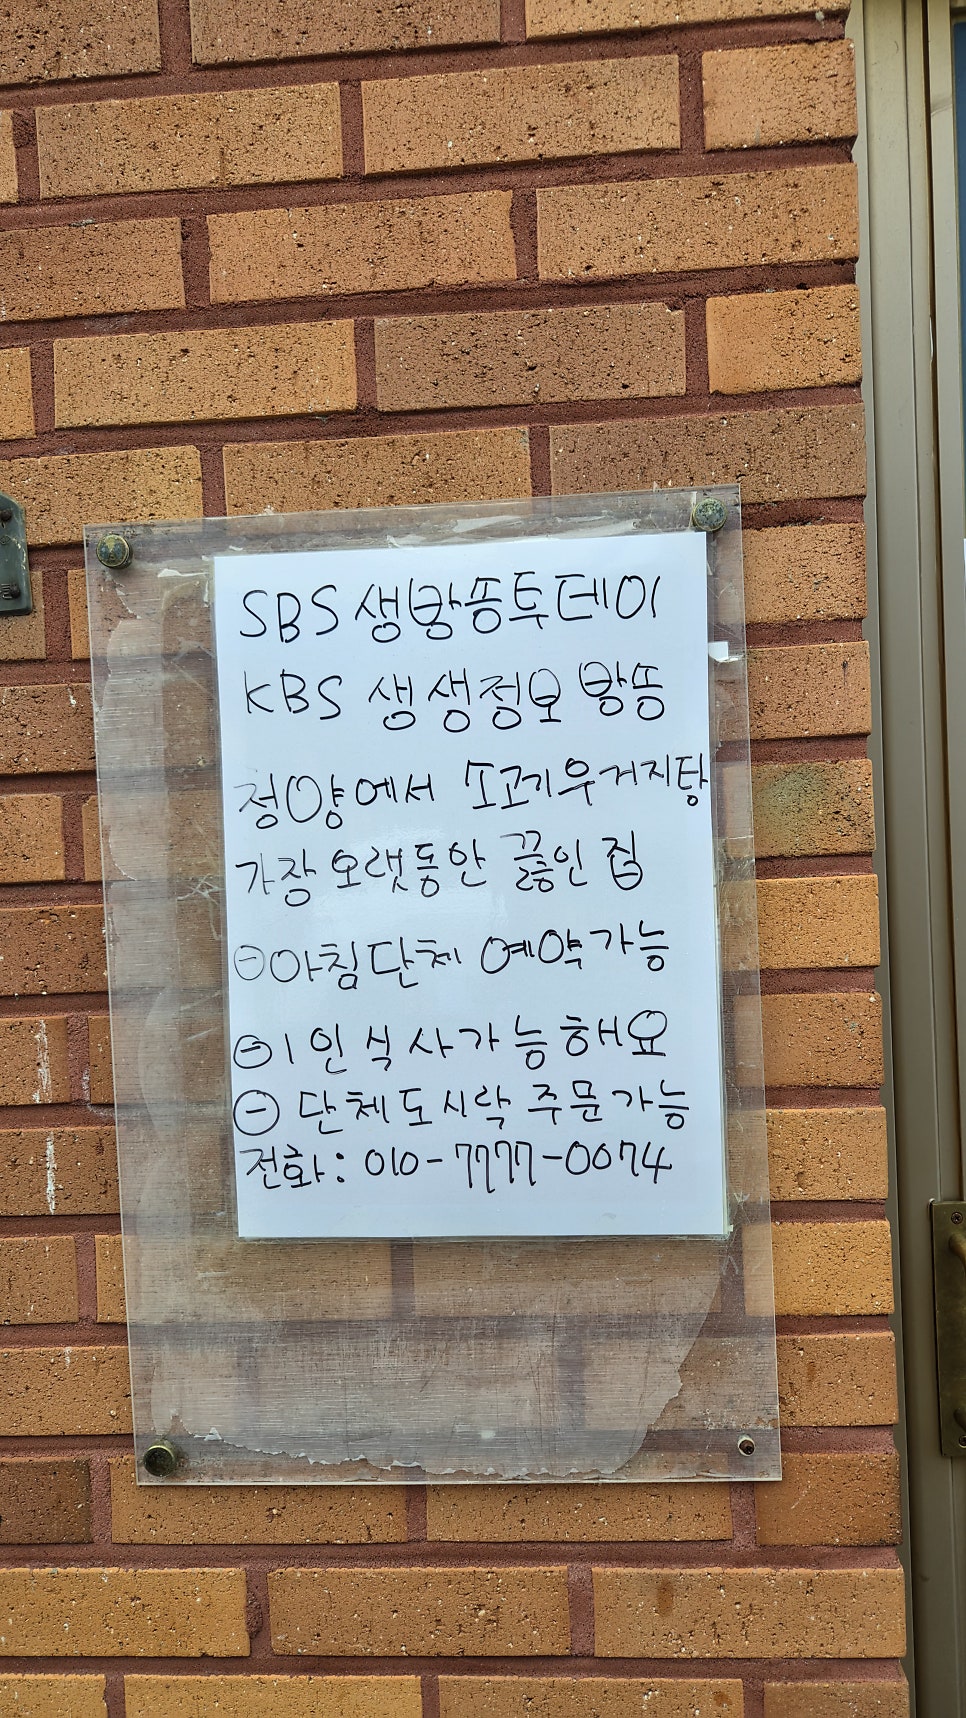 SBS 생방송투데이
KBS 생생정보 방송
청양에서 소고기우거지탕
가장 오랫동안 끓인 집
⊖아침단체 예약가능
⊖1인식사가능해요
⊖단체도시락 주문가능
전화: 010-7777-0074